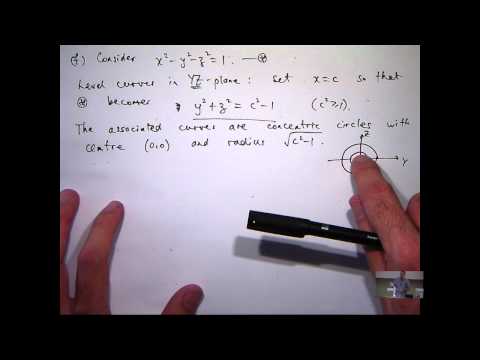 f) Consider x² - y² - z² = 1. — ⊛
Level curves in YZ-plane: set x = c so that
⊛ becomes y² + z² = c² - 1 (c² ≥ 1).
The associated curves are concentric circles with
centre (0,0) and radius √(c² - 1).
Z
Y